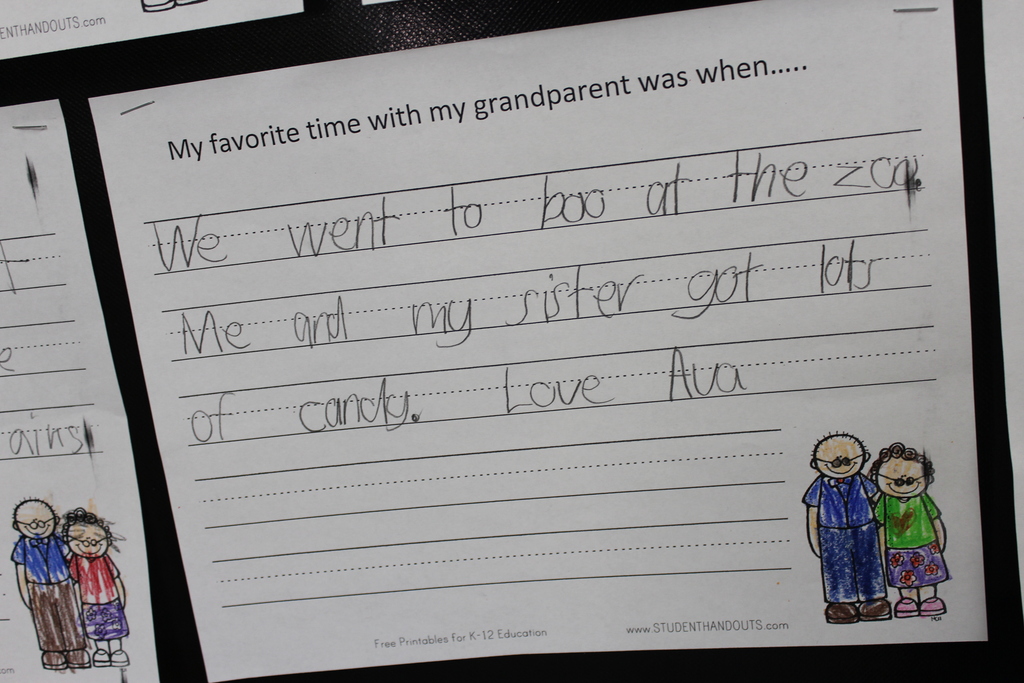 ENTHANDOUTS.com
My favorite time with my grandparent was when.....
We went to boo at the zoo.
Me and my sister got lots
of candy. Love Ava
ains
Free Printables for K-12 Education
www.STUDENTHANDOUTS.com